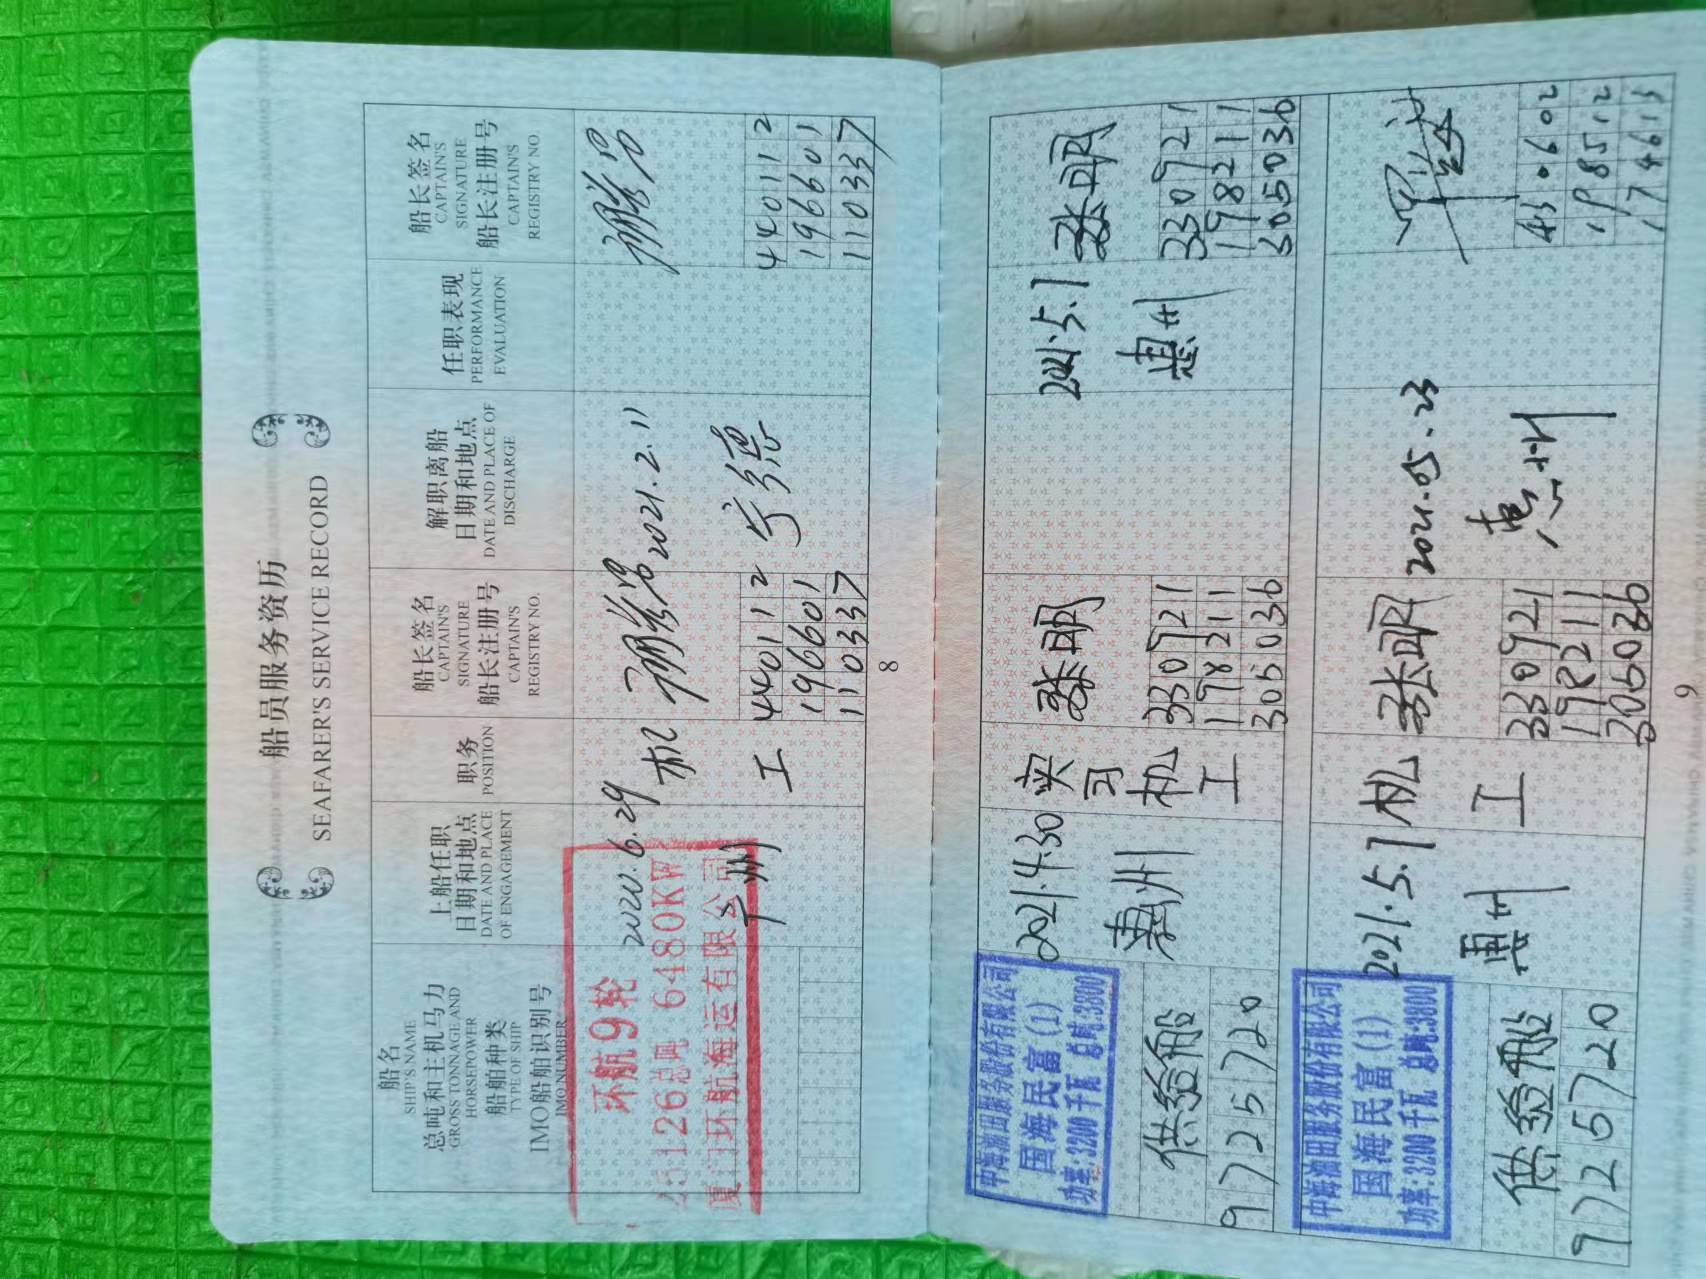 船员服务资历
SEAFARER'S SERVICE RECORD
船名
SHIP'S NAME
总吨和主机马力
GROSS TONNAGE AND
HORSEPOWER
船舶种类
TYPE OF SHIP
IMO船舶识别号
IMO NUMBER
上船任职
日期和地点
DATE AND PLACE
OF ENGAGEMENT
职务
POSITION
船长签名
CAPTAIN'S
SIGNATURE
船长注册号
CAPTAIN'S
REGISTRY NO.
解职离船
日期和地点
DATE AND PLACE OF
DISCHARGE
任职表现
PERFORMANCE
EVALUATION
船长签名
CAPTAIN'S
SIGNATURE
船长注册号
CAPTAIN'S
REGISTRY NO.
环航9轮
126总吨 6480KW
厦门环航海运有限公司
2020.6.29
广州
机
工
440112
196601
110337
2021.2.11
宁德
440112
196601
110337
8
中海油田服务股份有限公司
国海民富(1)
功率:3200千瓦 总吨:3800
供给船
9725720
2021.4.30
惠州
实
习
机
工
张明
330921
198211
305036
2021.5.1
惠州
张明
330921
198211
305036
中海油田服务股份有限公司
国海民富(1)
功率:3200千瓦 总吨:3800
供给船
9725720
2021.5.1
惠州
机
工
张明
330921
198211
305036
2021.05.23
惠州
430602
198512
174613
9